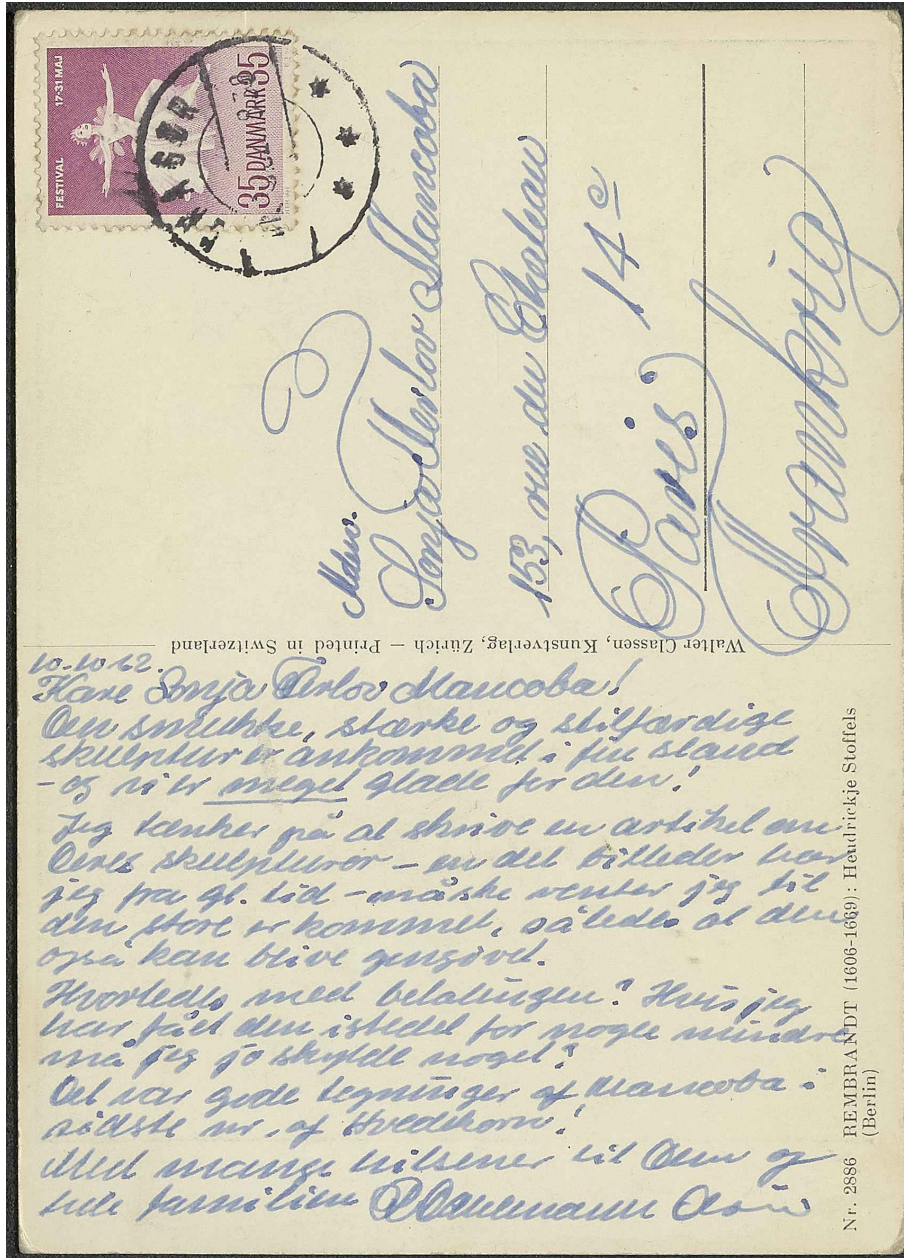 FESTIVAL 17-31 MAJ
35 DANMARK 35
Mdm.
Sonja Ferlov Mancoba
153, rue du Chateau
Paris 14e
Frankrig
Walter Classen, Kunstverlag, Zürich – Printed in Switzerland
10-10 62.
Kære Sonja Ferlov Mancoba!
Den smukke, stærke og stilfærdige
skulptur er ankommet i fin stand
- og vi er meget glade for den!
Jeg tænker på at skrive en artikel om
Deres skulpturer - en del billeder har
jeg fra gl. tid - måske venter jeg til
den store er kommet, således at den
også kan blive gengivet.
Hvorledes med betalingen? Hvis jeg
har fået den istedet for nogle mindre
må jeg jo skylde noget?
Det var gode tegninger af Mancoba i
sidste nr. af Hvedekorn!
Med mange hilsener til Dem og
hele familien
Nr. 2886 REMBRANDT (1606-1669): Hendrickje Stoffels
(Berlin)